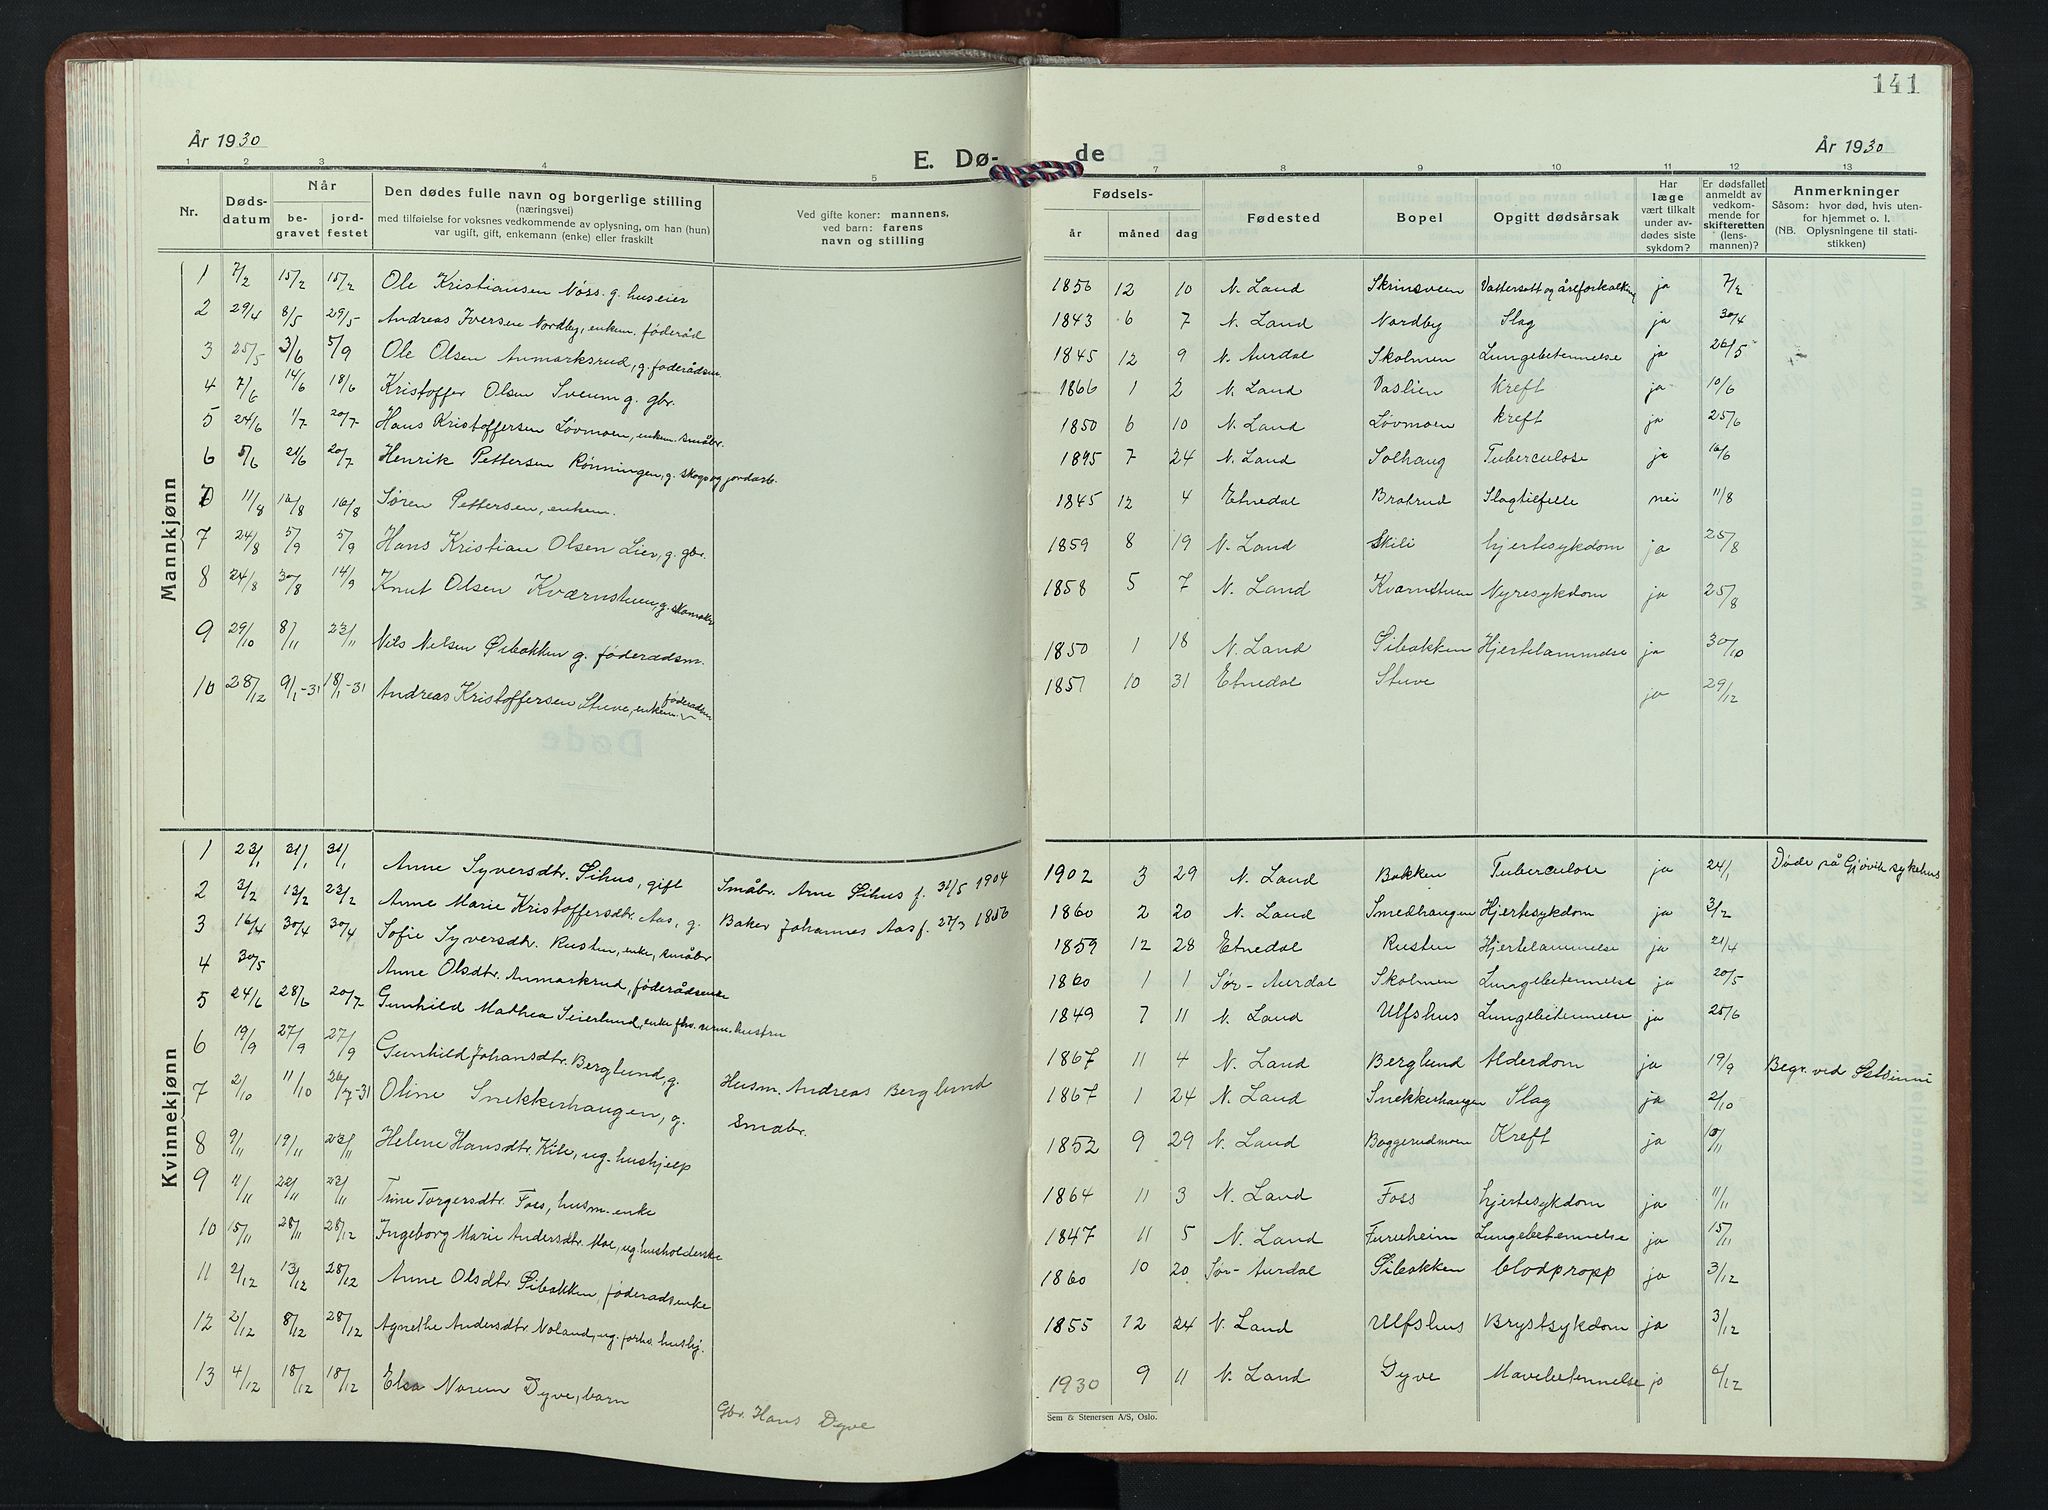 141
År 1930
E. Dø- de
År 1930
1 2 3 4 5 7 8 9 10 11 12 13
Nr.
Døds-datum
Når
be-gravet
jord-festet
Den dødes fulle navn og borgerlige stilling
(næringsvei)
med tilføielse for voksnes vedkommende av oplysning, om han (hun)
var ugift, gift, enkemann (enke) eller fraskilt
Ved gifte koner: mannens,
ved barn: farens
navn og stilling
Fødsels-
år måned dag
Fødested
Bopel
Opgitt dødsårsak
Har
læge
vært tilkalt
under av-
dødes siste
sykdom?
Er dødsfallet
anmeldt av
vedkom-
mende for
skifteretten
(lens-
mannen)?
Anmerkninger
Såsom: hvor død, hvis uten-
for hjemmet o. l.
(NB. Oplysningene til stati-
stikken)
Mannkjønn
1 7/2 15/2 15/2 Ole Kristiansen Nøss. g. huseier 1856 12 10 N. Land Skrinsveen Vattersott og åreforkalkning ja 7/2
2 29/4 8/5 29/5 Andreas Iversen Nordby, enkem. føderåd 1843 6 7 N. Land Nordby Slag ja 30/4
3 25/5 3/6 5/9 Ole Olsen Anmarksrud, g. føderådsm. 1845 12 9 N. Aurdal Skolmen Lungebetennelse ja 26/5
4 7/6 14/6 18/6 Kristoffer Olsen Sveum g. gbr. 1866 1 2 N. Land Vaslien Kreft ja 10/6
5 24/6 1/7 20/7 Hans Kristoffersen Løvmoen, enkem. småbr. 1850 6 10 N. Land Løvmoen kreft ja 25/6
6 5/6 21/6 20/7 Henrik Pettersen Rønningen, g. skogs og jordarb. 1895 7 24 N. Land Solhaug Tuberculose ja 16/6
D 11/8 16/8 16/8 Søren Pettersen, enkem. 1845 12 4 Etnedal Bratrud Slagtilfelle nei 11/8
7 24/8 5/9 5/9 Hans Kristian Olsen Lien, g. gbr. 1859 8 19 N. Land Skili hjertesykdom ja 25/8
8 24/8 30/8 14/9 Knut Olsen Kværnstuen, g. skomaker 1858 5 7 N. Land Kvarnstuen Nyresykdom ja 25/8
9 29/10 8/11 23/11 Nils Nilsen Øibakken g. føderådsm. 1850 1 18 N. Land Øibakken Hjertelammelse ja 30/10
10 28/12 9/1-31 18/1-31 Andreas Kristoffersen Stuve, enkem. føderådsm 1851 10 31 Etnedal Stuve ja 29/12
Døde
Kvinnekjønn
1 23/1 31/1 31/1 Anne Syversdtr. Øihus, gift Småbr. Arne Øihus f. 31/5 1904 1902 3 29 N. Land Bakken Tuberculose ja 24/1 Døde på Gjøvik sykehus
2 3/2 13/2 23/2 Anne Marie Kristoffersdtr. Aas, g. Baker Johannes Aas f. 27/3 1856 1860 2 20 N. Land Smedhaugen Hjertesykdom ja 3/2
3 16/4 30/4 30/4 Sofie Syversdtr. Rusten, enke, småbr 1859 12 28 Etnedal Rusten Hjertelammelse ja 21/4
4 30/5 Anne Olsdtr. Anmarkrud, føderådsenke 1860 1 1 Sør-Aurdal Skolmen Lungebetennelse ja 20/5
5 24/6 28/6 20/7 Gunhild Mathea Seierlund, enke fhv. hustru 1849 7 11 N. Land Ulfshus Lungebetennelse ja 25/6
6 19/9 27/9 27/9 Gunhild Johansdtr. Berglund, g. Husm. Andreas Berglund 1867 11 4 N. Land Berglund Alderdom ja 19/9 Begr. ved
7 2/10 11/10 26/7-31 Oline Snekkerhaugen, g. småbr. 1867 1 24 N. Land Snekkerhaugen Slag ja 2/10
8 9/11 19/11 23/11 Helene Hansdtr. Kile, ug. hushjelp 1852 9 29 N. Land Baggerudmoen Kreft ja 10/11
9 11/11 22/11 23/11 Trine Torgersdtr. Foss, husm. enke 1864 11 3 N. Land Foss hjertesykdom ja 11/11
10 15/11 28/11 28/12 Ingeborg Marie Andersdtr. Moe, ug. husholderske 1847 11 5 N. Land Furuheim Lungebetennelse ja 15/11
11 2/12 13/12 28/12 Anne Olsdtr Øibakken, føderådsenke 1860 10 20 Sør-Aurdal Øibakken blodpropp ja 3/12
12 2/12 8/12 28/12 Agnethe Andersdtr Noland, ug. forhv. hushj. 1855 12 24 N. Land Ulfshus Brystsykdom ja 3/12
13 4/12 18/12 18/12 Elsa Noren Dyve, barn Gbr. Hans Dyve 1930 9 11 N. Land Dyve Mavebetennelse ja 6/12
Sem & Stenersen A/S, Oslo.